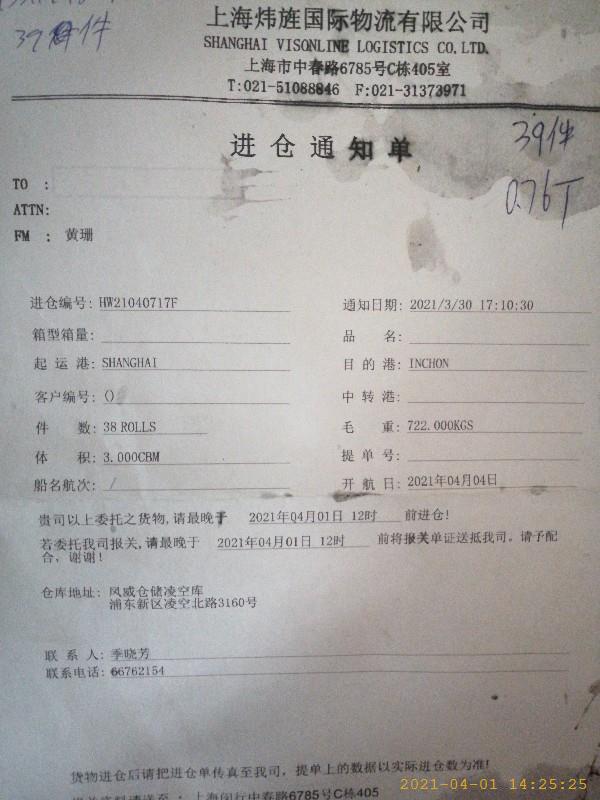 39件
上海炜旌国际物流有限公司
SHANGHAI VISONLINE LOGISTICS CO,LTD.
上海市中春路6785号C栋405室
T:021-51088846 F:021-31373971
进仓通知单
39件
0.76T
TO :
ATTN:
FM : 黄珊
进仓编号: HW21040717F 通知日期: 2021/3/30 17:10:30
箱型箱量: 品 名:
起运港: SHANGHAI 目的港: INCHON
客户编号: () 中转港:
件 数: 38 ROLLS 毛 重: 722.000KGS
体 积: 3.000CBM 提单号:
船名航次: / 开航日: 2021年04月04日
贵司以上委托之货物,请最晚于 2021年04月01日 12时 前进仓!
若委托我司报关,请最晚于 2021年04月01日 12时 前将报关单证送抵我司。请予配
合、谢谢!
仓库地址: 风威仓储凌空库
浦东新区凌空北路3160号
联系人: 季晓芳
联系电话: 66762154
货物进仓后请把进仓单传真至我司，提单上的数据以实际进仓数为准!
上海闵行中春路6785号C栋405
2021-04-01 14:25:25